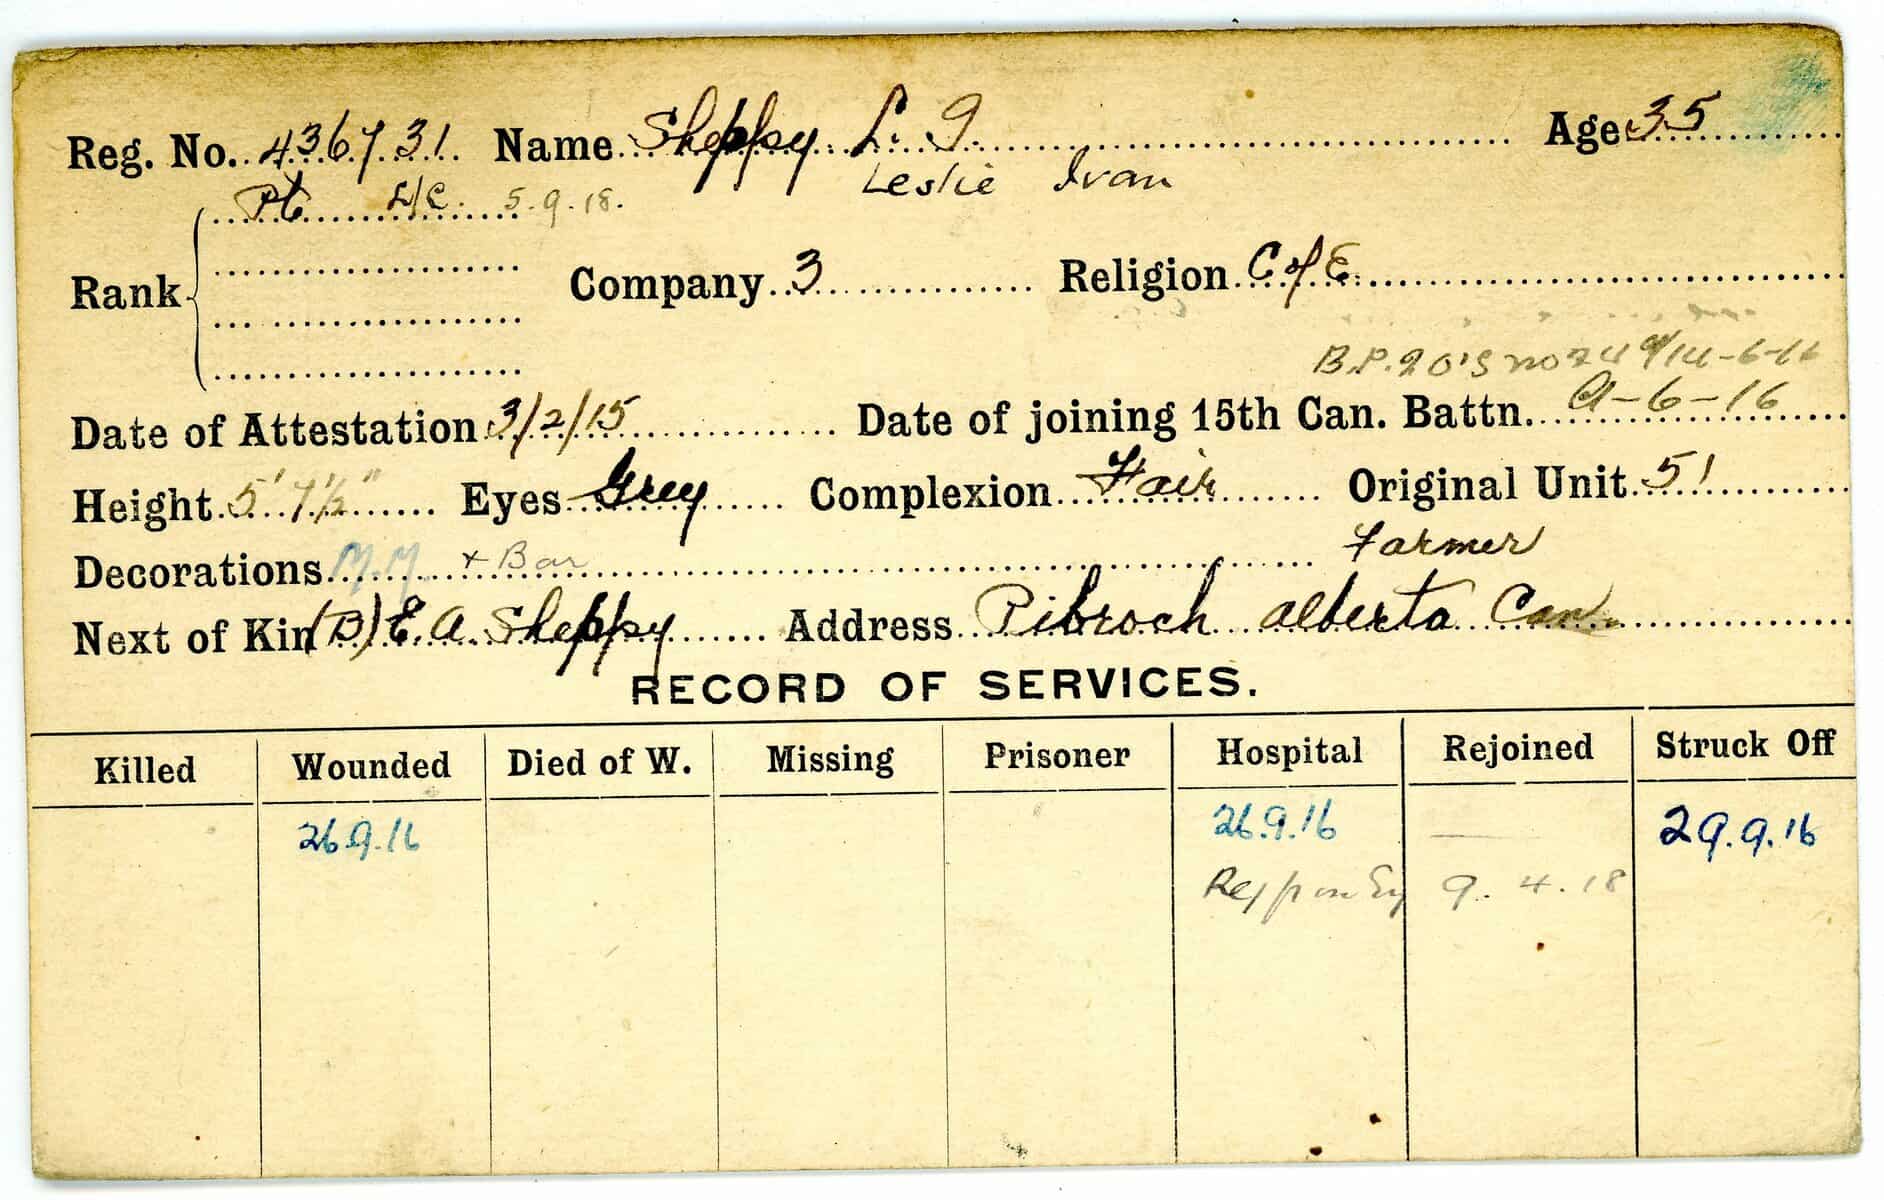 Reg. No. 436731 Name Sheppy L. I. Age 35
Leslie Ivan
Pte L/C. 5.9.18.
Rank Company 3 Religion C of E.
B.P. 20's no 74 9/14-6-16
Date of Attestation 3/2/15 Date of joining 15th Can. Battn. 9-6-16
Height 5' 7½" Eyes Grey Complexion Fair Original Unit 51
Farmer
Decorations M.M. + Bar
Next of Kin (B) E. A. Sheppy Address Pibroch Alberta Can.
RECORD OF SERVICES.
Killed Wounded Died of W. Missing Prisoner Hospital Rejoined Struck Off
26.9.16 26.9.16 29.9.16
9.4.18